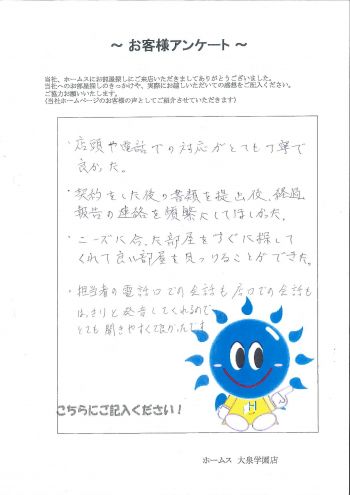 ～ お客様アンケート ～
当社、ホームスにお部屋探しにご来店いただきましてありがとうございました。
当社へのお部屋探しのきっかけや、実際にお越しいただいての感想をご記入ください。
ご協力お願いいたします。
(当社ホームページのお客様の声としてご紹介させていただきます)
・店頭や電話での対応がとても丁寧で
良かった。
・契約をした後の書類を提出後、経過
報告の連絡を頻繁にしてほしかった。
・ニーズに合った部屋をすぐに探して
くれて良い部屋を見つけることができた。
・担当者の電話口での会話も店口での会話も
はっきりと発音してくれるので
とても聞きやすくて良かったです
H
こちらにご記入ください！
ホームス 大泉学園店